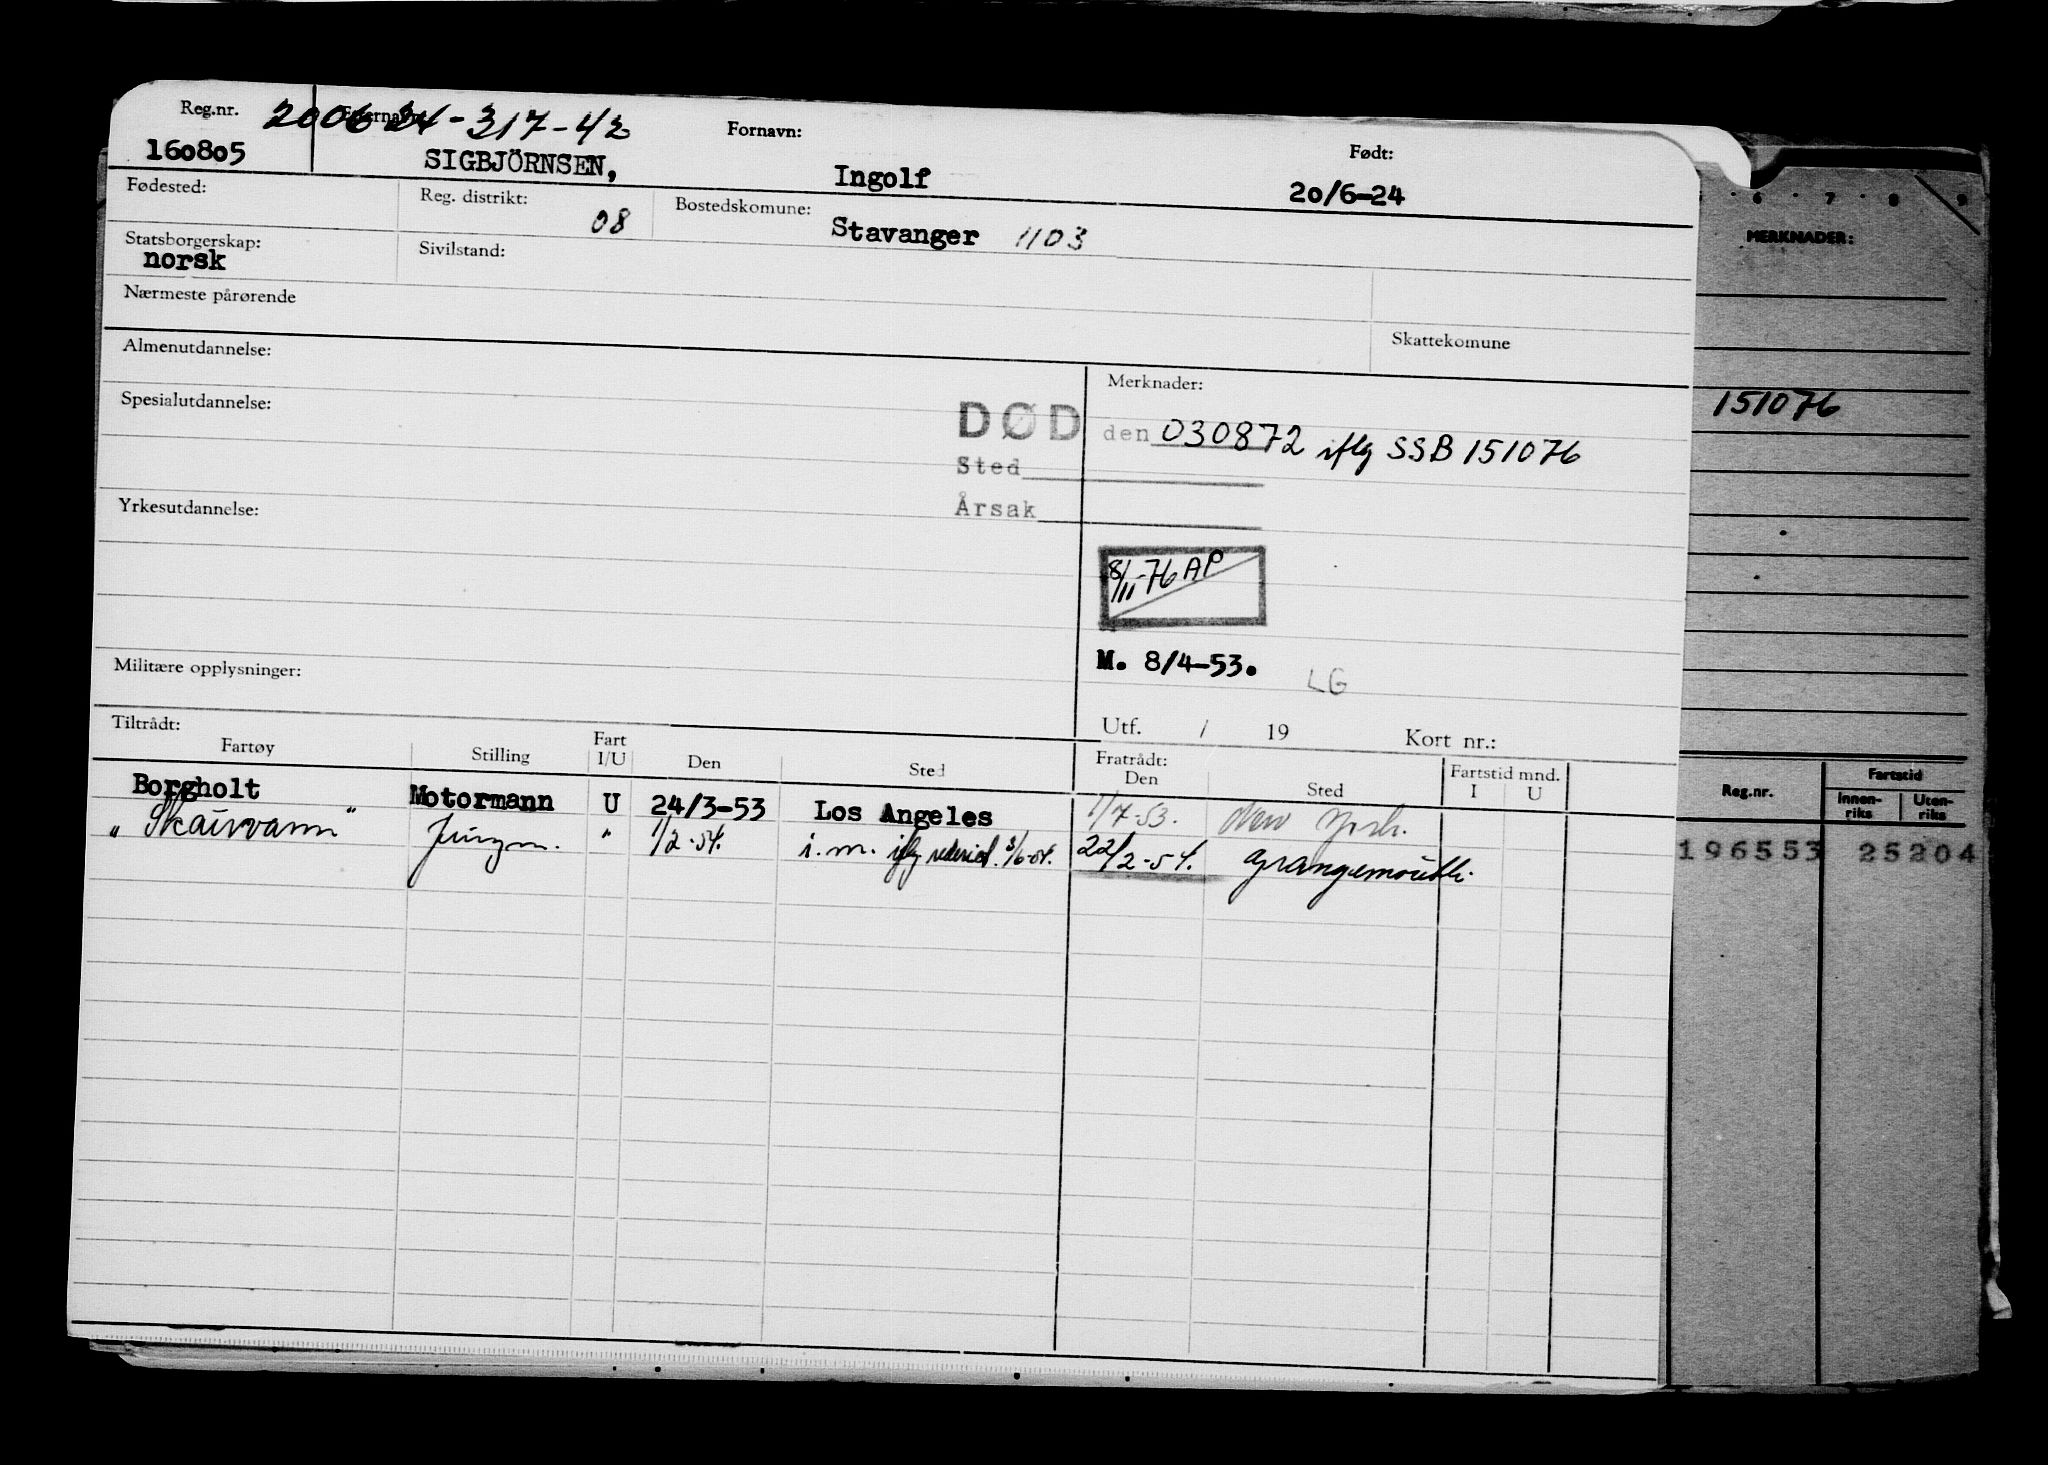 Reg.nr. 200624-317-42 Fornavn: Født:
160805 SIGBJÖRNSEN, Ingolf 20/6-24
Fødested: Reg. distrikt: 08 Bostedskomune: Stavanger 1103
Statsborgerskap: norsk Sivilstand:
MERKNADER:
Nærmeste pårørende
Skattekomune
Almenutdannelse: Merknader:
Spesialutdannelse: DØD den 030872 iflg SSB 151076
151076
Sted
Årsak
Yrkesutdannelse:
8/11-76 AP
Militære opplysninger: M. 8/4-53. LG
Utf. / 19 Kort nr.:
Tiltrådt: Fratrådt:
Fartøy Stilling Fart I/U Den Sted Den Sted Fartstid mnd. I U
Reg.nr. Fartstid Innen-riks Uten-riks
Borgholt Motormann U 24/3-53 Los Angeles 1/7-53. New York.
" " Jungm. " 1/2-54. i.m. iflg rederiet. 3/6-54. 22/2-54. Grangemouth.
196553 25204
6 7 8 9